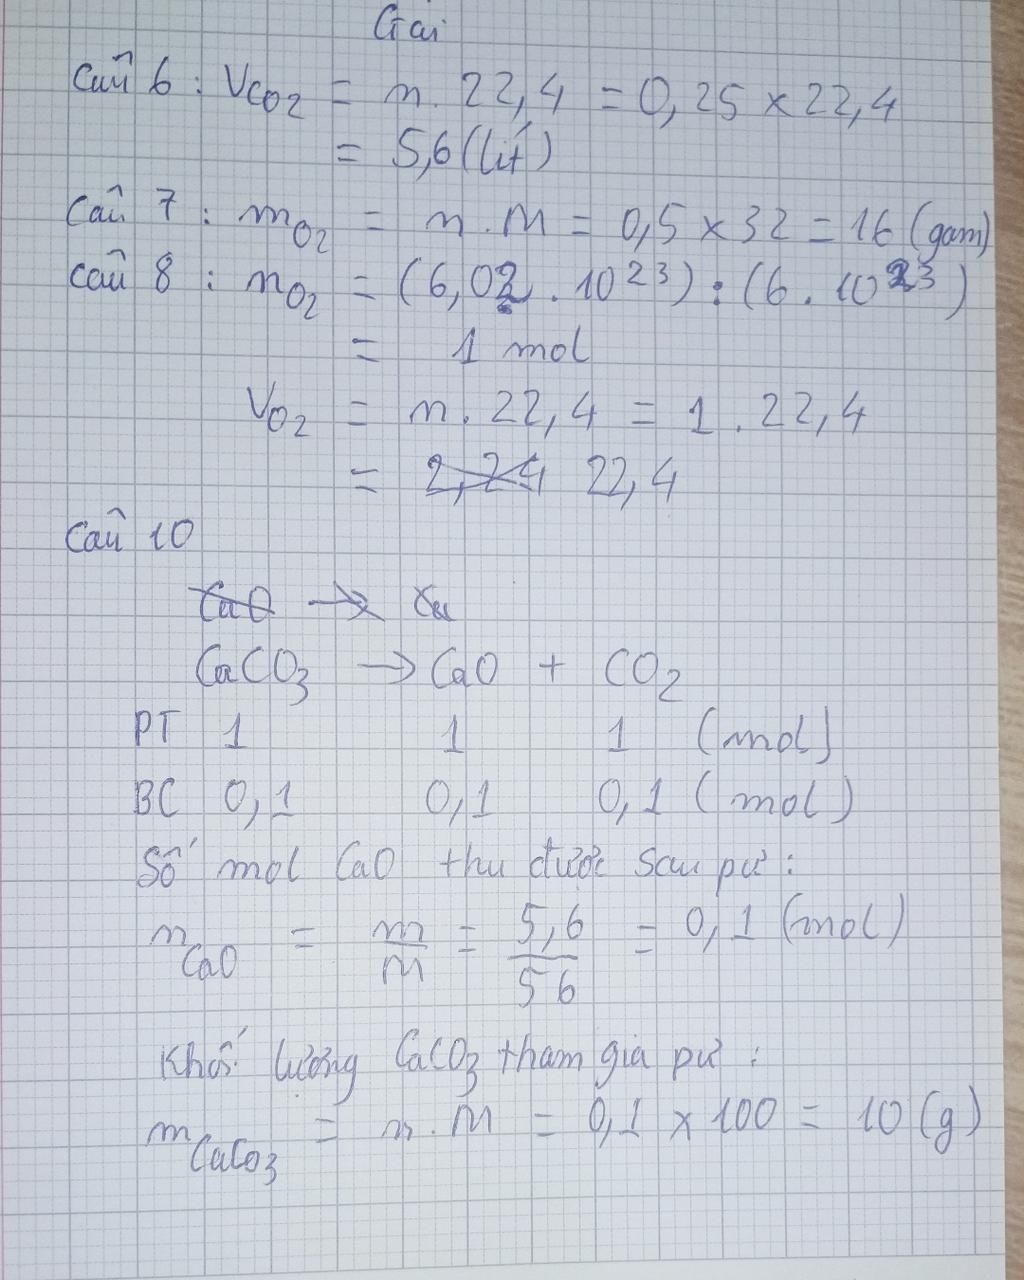 Giải
Câu 6 : VCO2 = n. 22,4 = 0,25 x 22,4
= 5,6 (lít)
Câu 7 : mO2 = n.M = 0,5 x 32 = 16 (gam)
Câu 8 : nO2 = (6,02 . 10^23) : (6 . 10^23)
= 1 mol
VO2 = n. 22,4 = 1 . 22,4
= 2,24 22,4
Câu 10
CaO →
CaCO3 → CaO + CO2
PT 1 1 1 (mol)
BC 0,1 0,1 0,1 (mol)
Số mol CaO thu được sau pư :
nCaO = m/M = 5,6/56 = 0,1 (mol)
Khối lượng CaCO3 tham gia pư :
mCaCO3 = n.M = 0,1 x 100 = 10 (g)